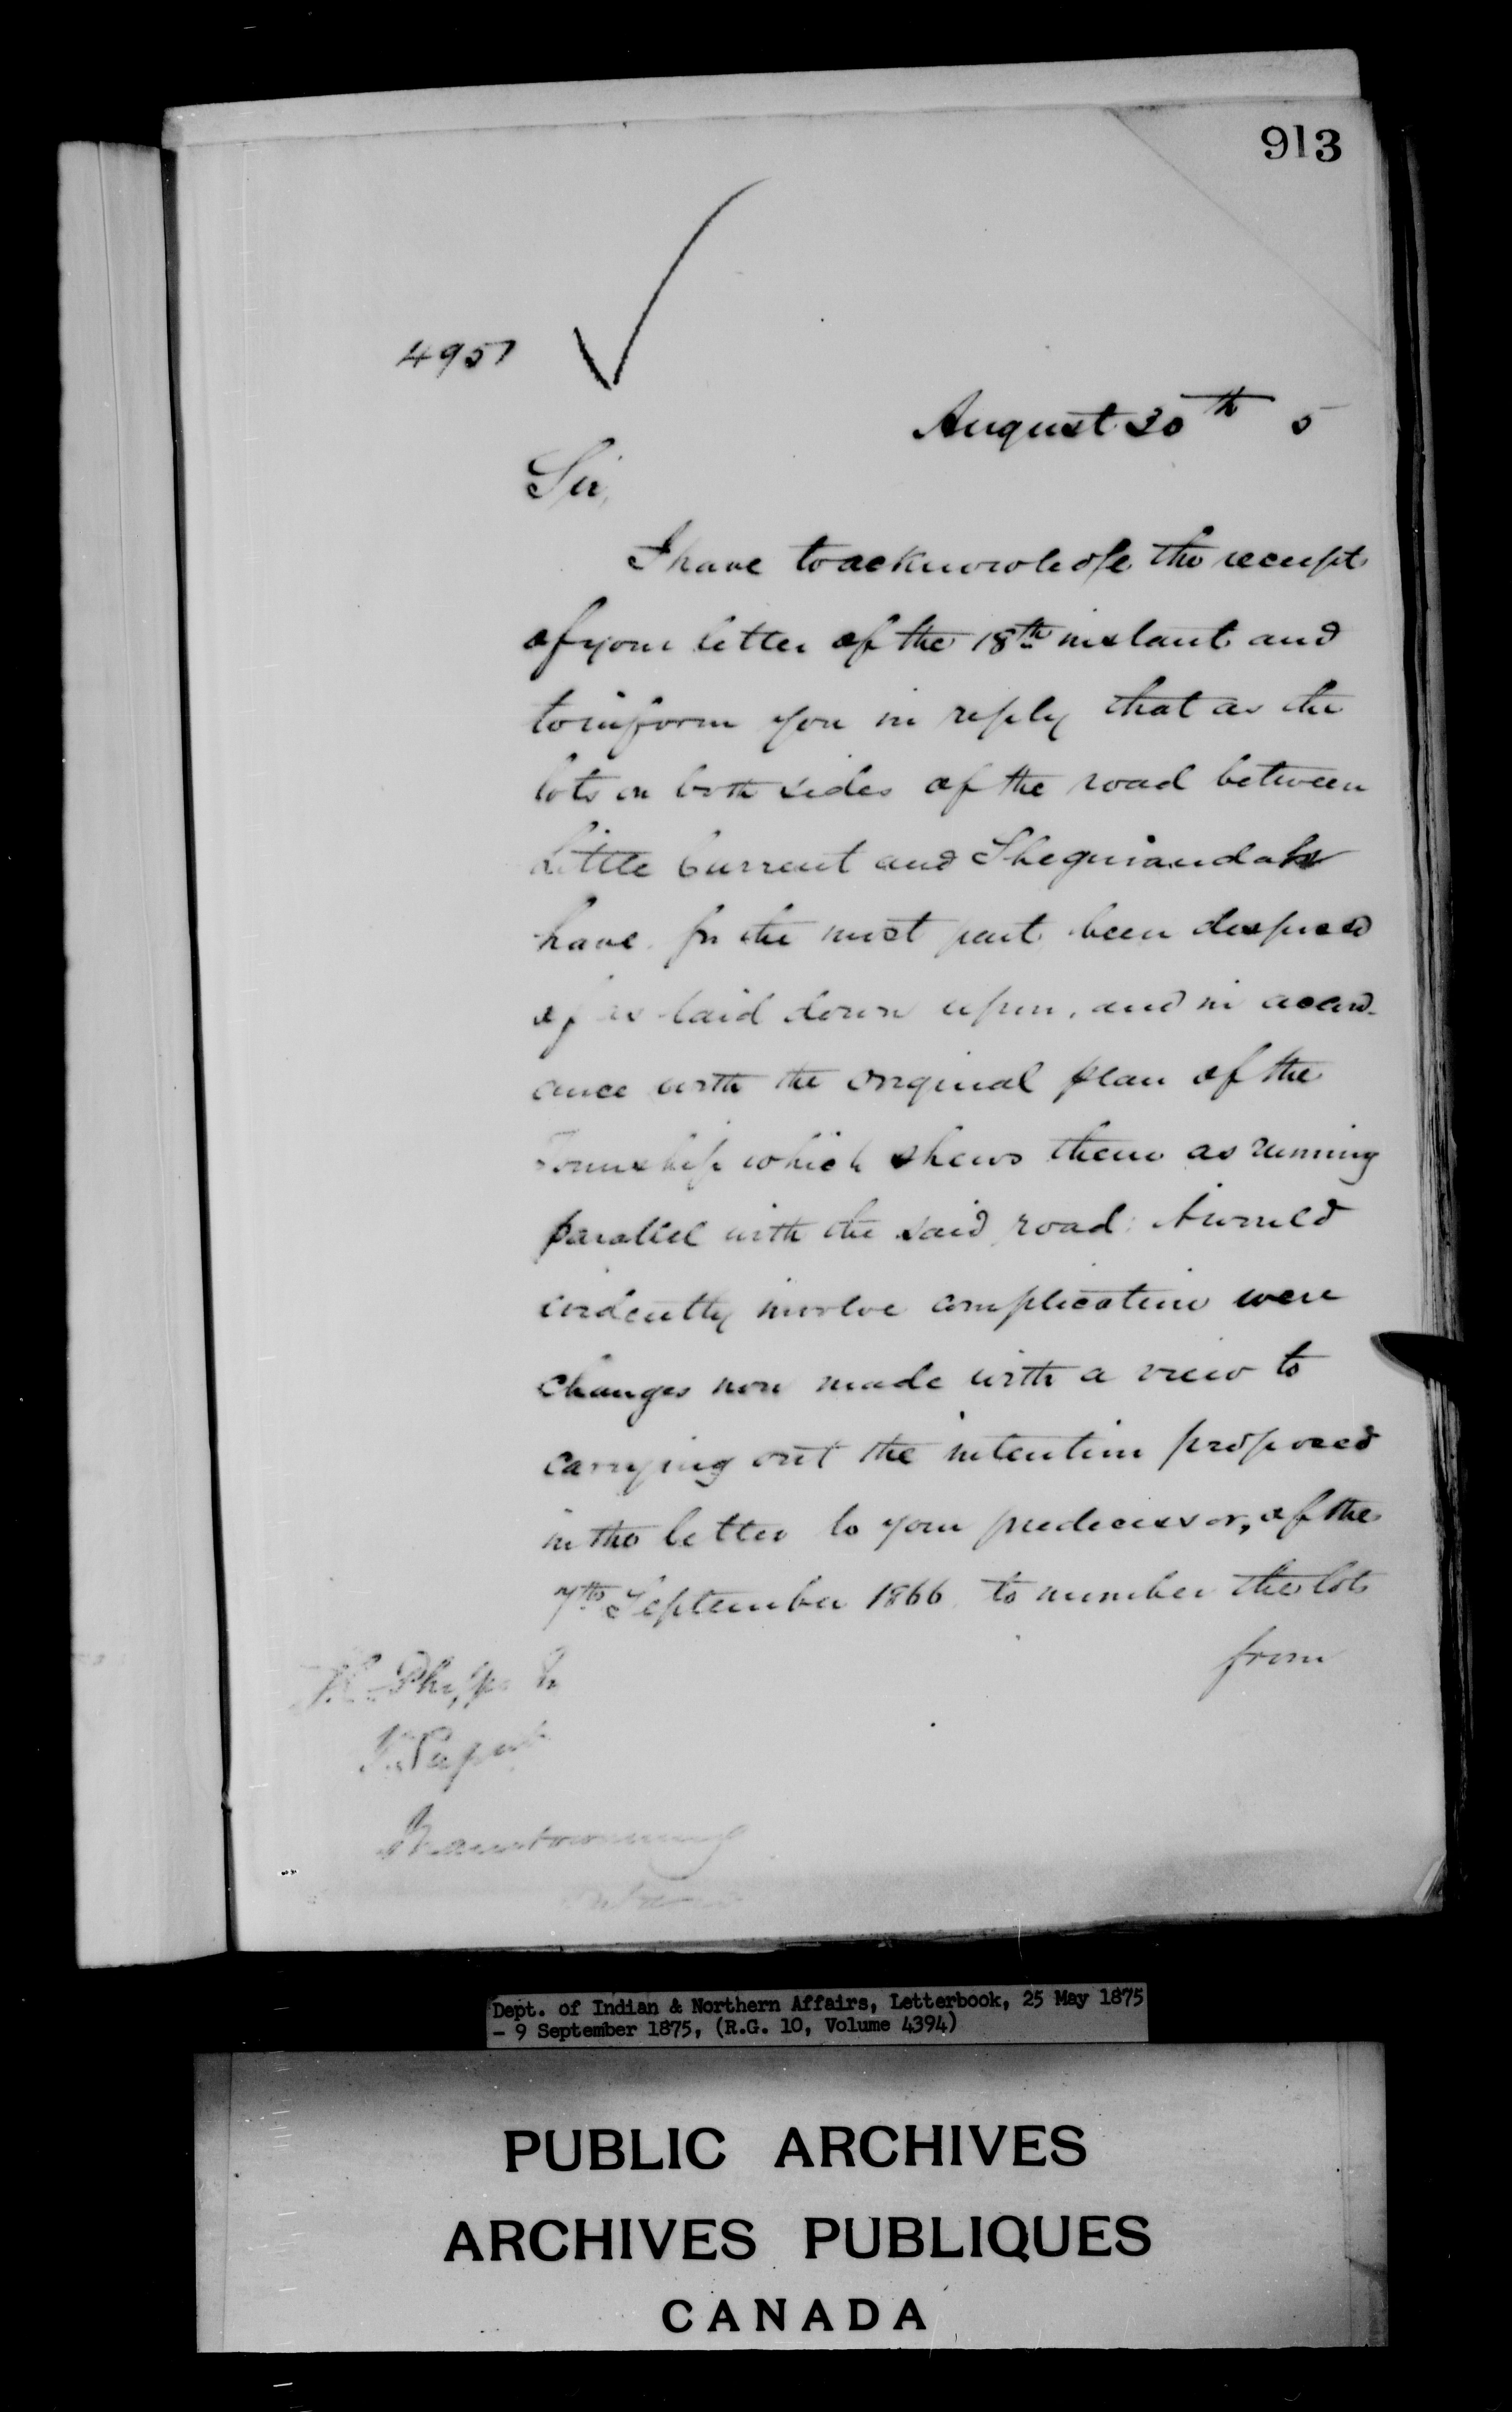 913
4957
August 30th 5
Sir,
I have to acknowledge the receipt
of your letter of the 18th instant and
to inform you in reply that as the
lots on both sides of the road between
Little Current and Sheguiandah
have for the most part been disposed
of as laid down upon, and in accord-
ance with the original plan of the
Township which shews them as running
parallel with the said road: it would
evidently involve complication were
changes now made with a view to
carrying out the intention proposed
in the letter to your predecessor, of the
7th September 1866 to number the lots
from
Phipps
Manitowaning
Dept. of Indian & Northern Affairs, Letterbook, 25 May 1875
- 9 September 1875, (R.G. 10, Volume 4394)
PUBLIC ARCHIVES
ARCHIVES PUBLIQUES
CANADA